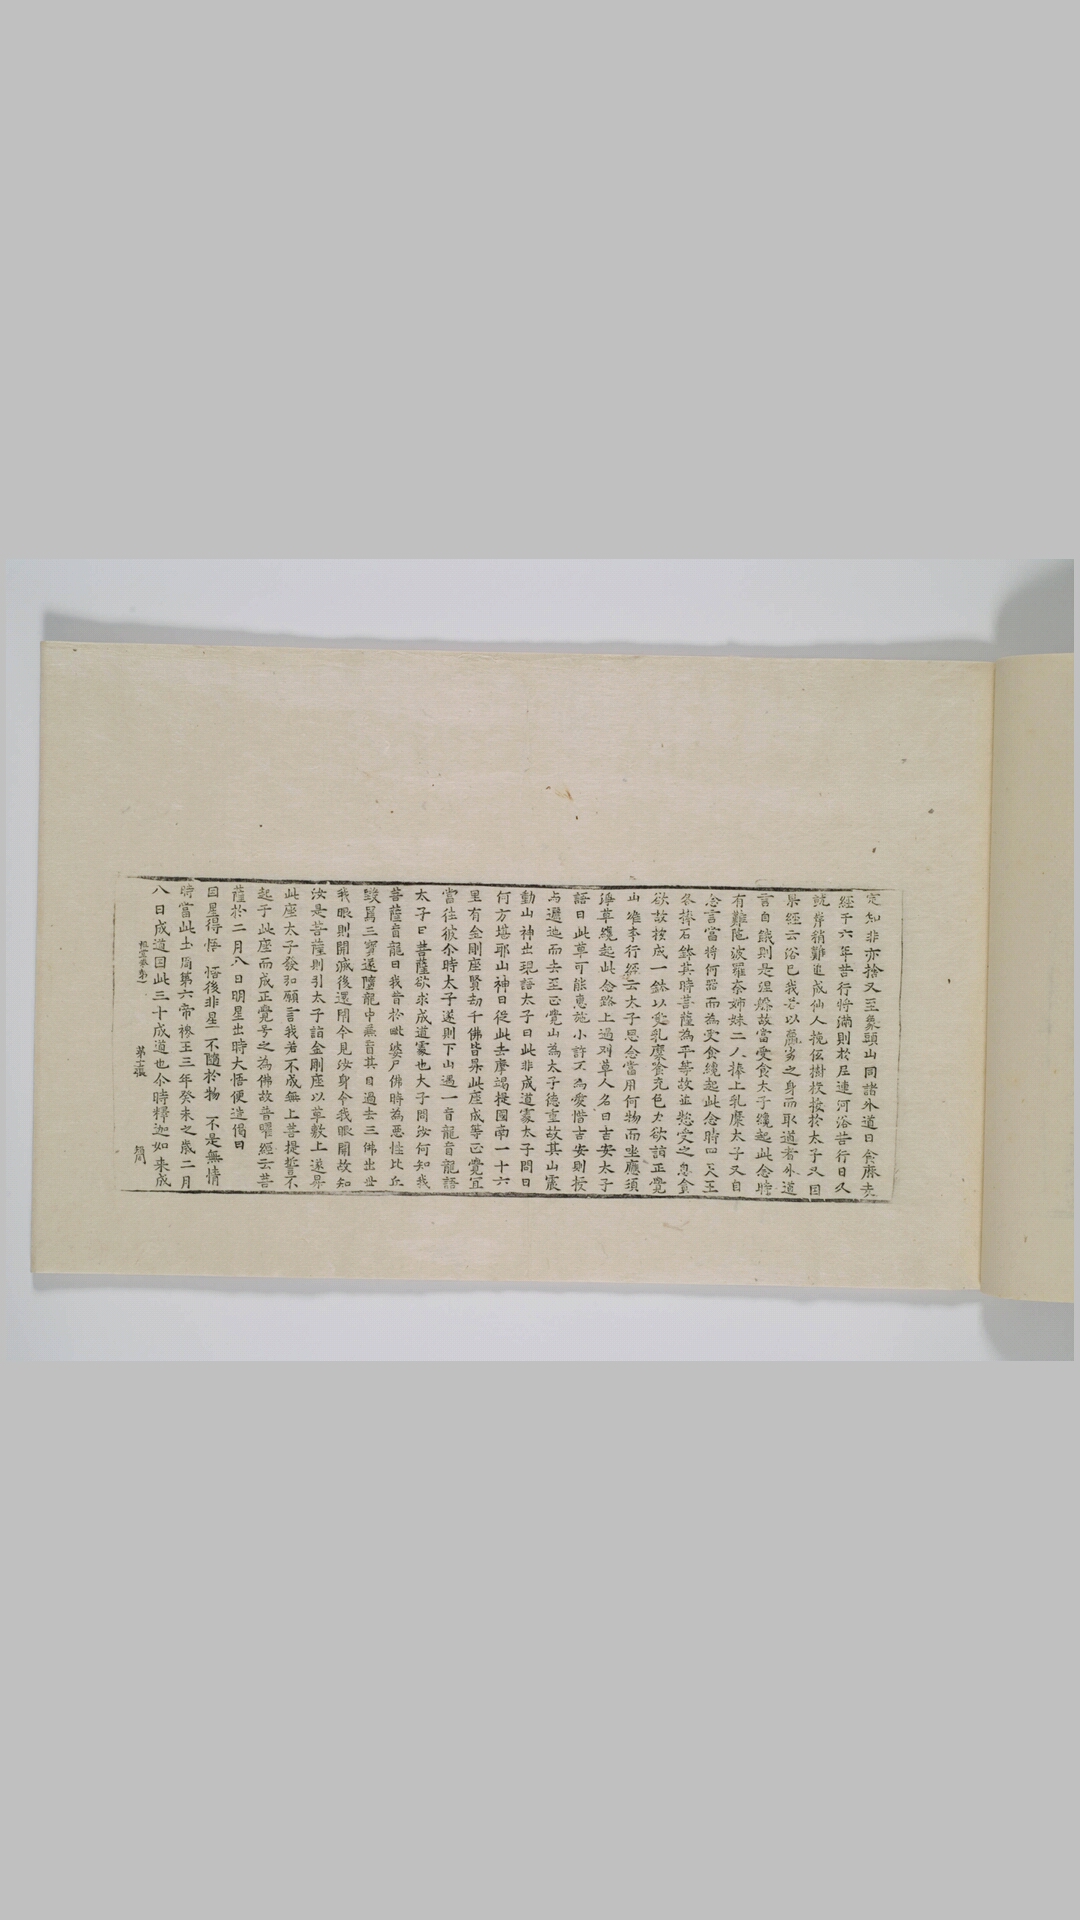 定知非亦捨又至象頭山同諸外道日食麻麦
經于六年苦行將滿則於尼連河浴苦行日久
就岸稍難追成仙人挽低樹枝按於太子又因
果經云浴已我若以羸劣之身而取道者外道
言自餓則是涅槃故當受食太子纔起此念時
有難陁波羅奈姊妹二人捧上乳糜太子又自
念言當將何器而為受食纔起此念時四天王
各捧石鉢其時菩薩為平等故並慾受之息貪
欲故按成一鉢以乳糜喰充色力欲詣正覺
山 李行經云太子思念當用何物而坐應須
淨草纔起此念路上遇刈草人名曰吉安太子
語曰此草可能惠施小許不為愛惜吉安則授
与邐迤而去至正覺山為太子德重故其山震
動山神出現語太子曰此非成道處太子問曰
何方堪耶山神曰從此去摩竭提國南一十六
里有金剛座賢劫千佛皆昇此座成等正覺宜
當往彼尒時太子遂則下山遇一盲龍盲龍語
太子曰菩薩欲求成道處也太子問汝何知我
菩薩盲龍曰我昔於毗婆尸佛時為惡性比丘
毀罵三寶遂墮龍中無盲其目過去三佛出世
我眼則開滅後還閉今見汝身令我眼開故知
汝是菩薩則引太子詣金剛座以草敷上遂昇
此座太子發弘願言我若不成無上菩提誓不
起于此座而成正覺号之為佛故普曜經云菩
薩於二月八日明星出時大悟便造偈曰
因星得悟 悟後非星 不隨於物 不是無情
時當此土周第六帝穆王三年癸未之歲二月
八日成道因此三十成道也尒時釋迦如來成
祖堂卷第一 第十張